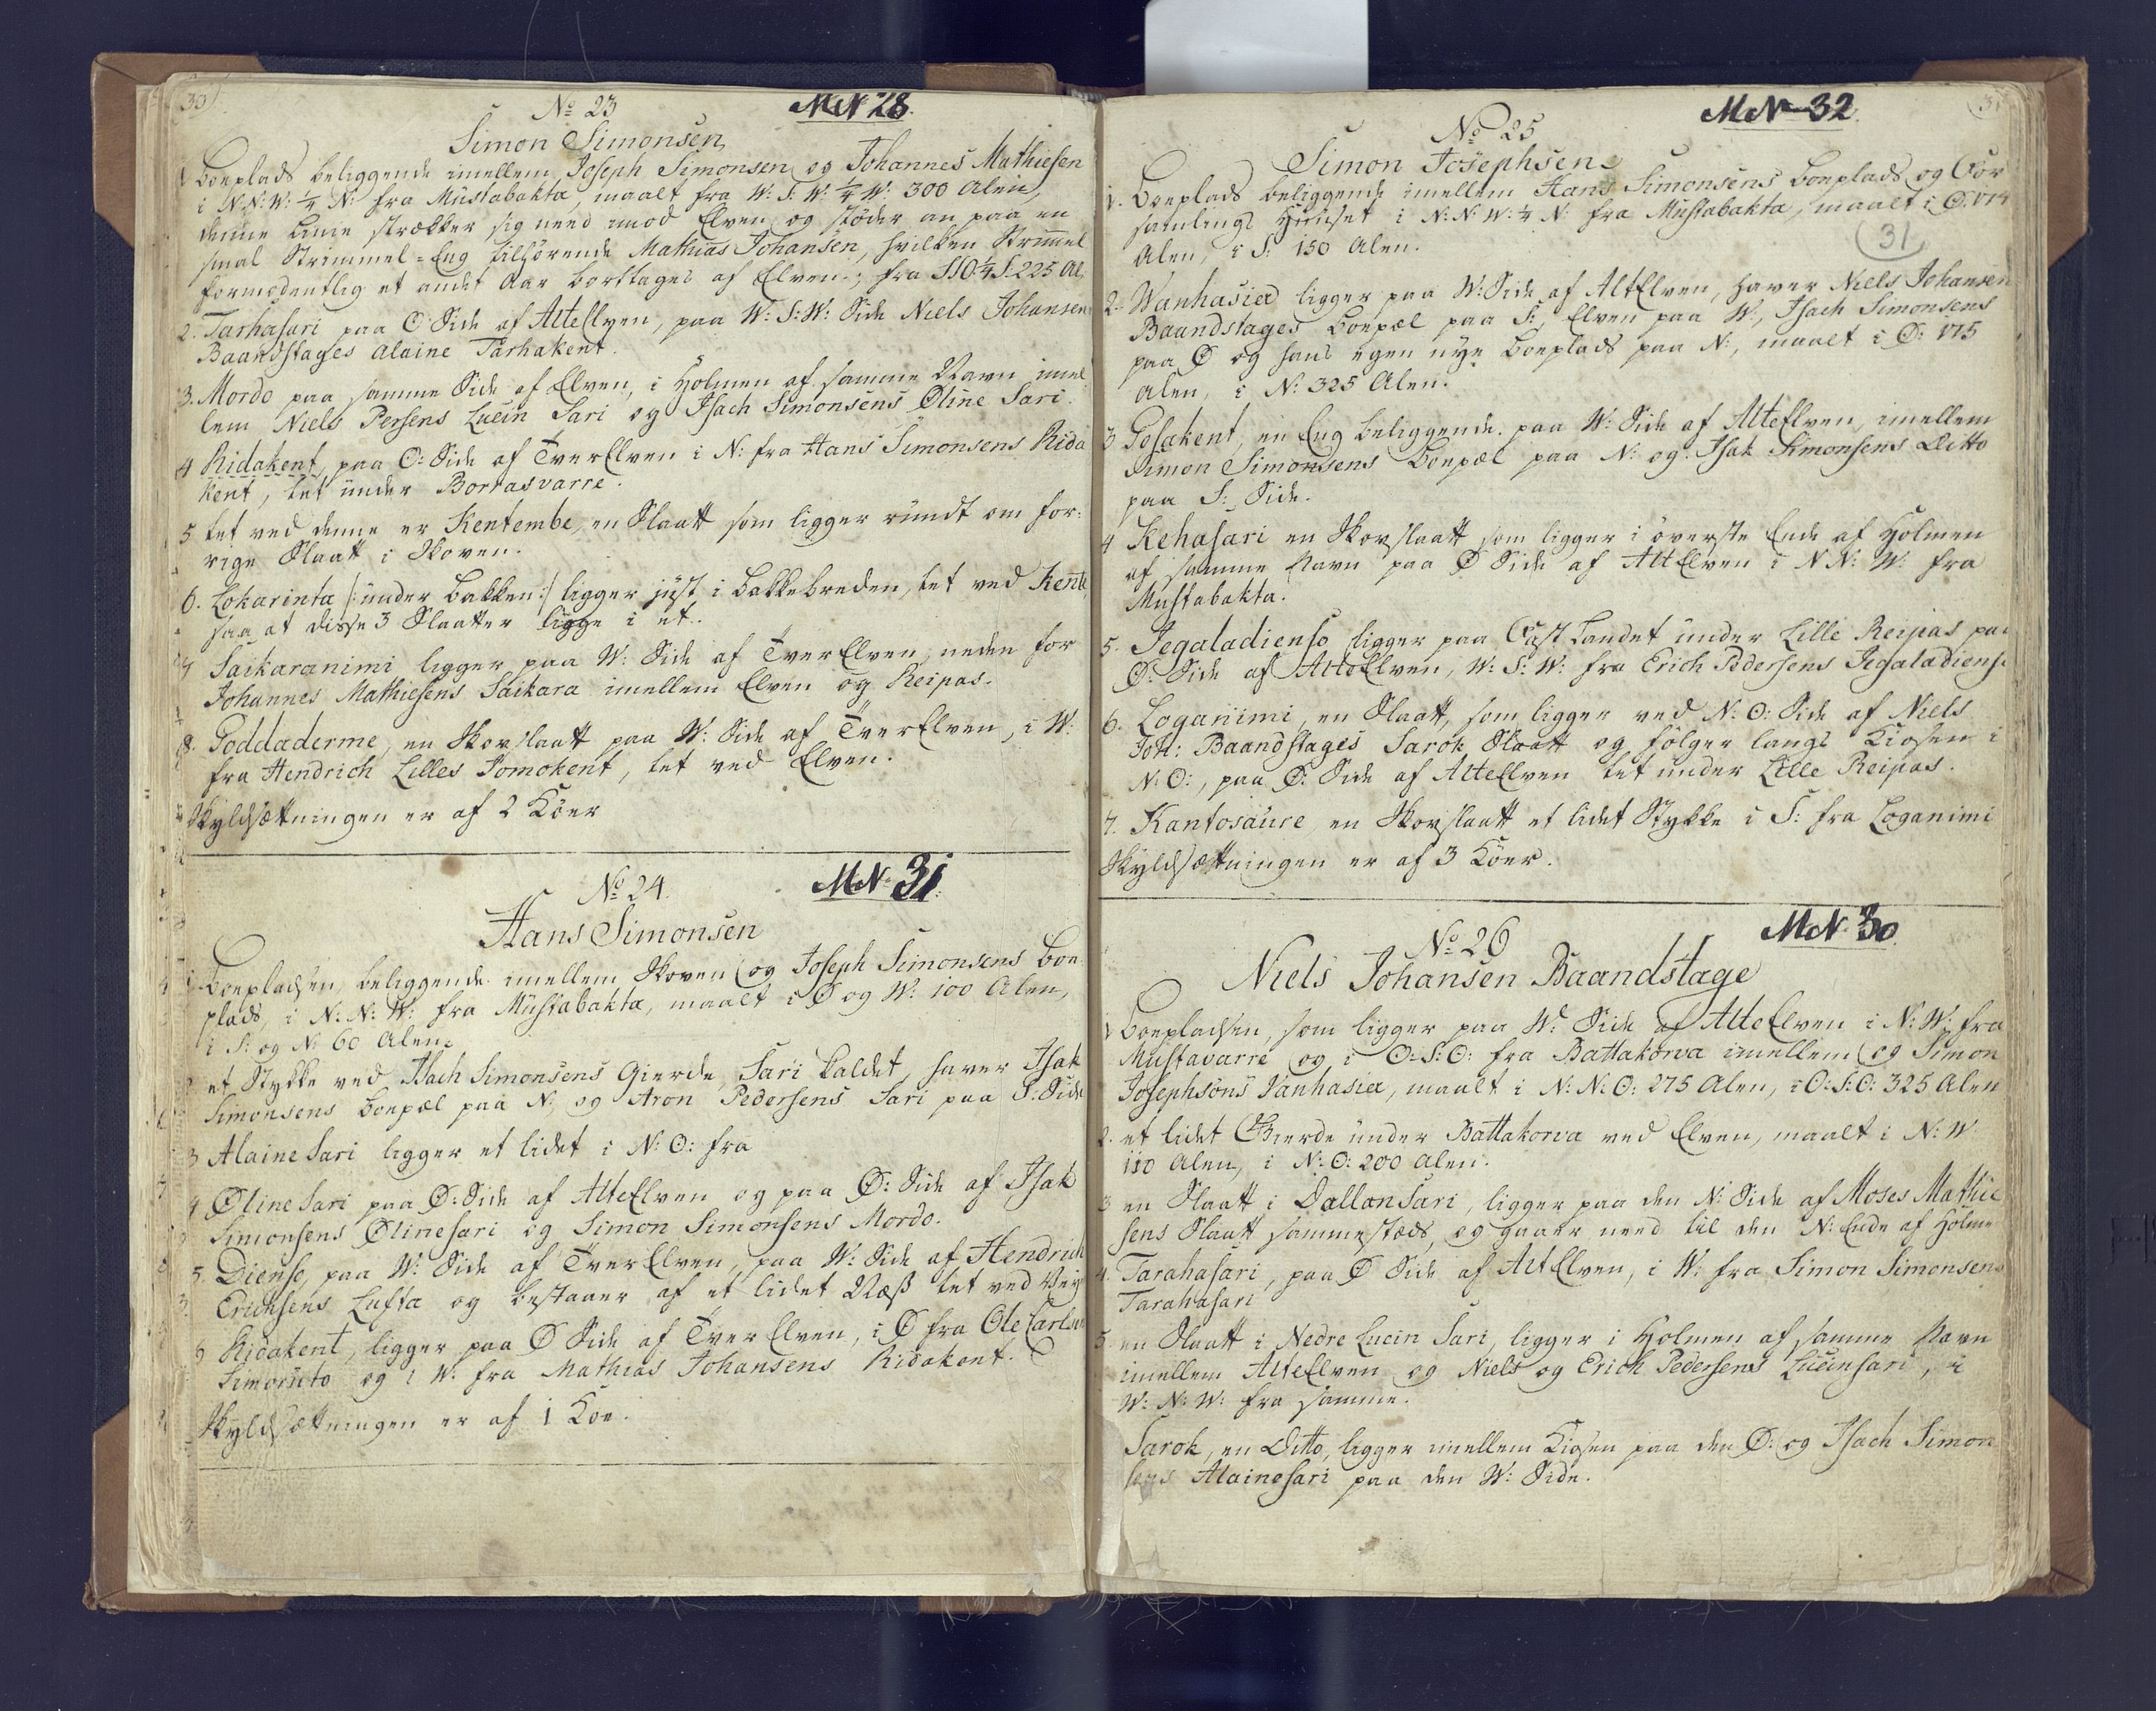 30
No 23
MN 28.
Simon Simonsen
1 Boeplads beliggende imellem Joseph Simonsen og Johannes Mathiesen
i N:N:W: ¼ N: fra Mustabakta, maalt fra W: S: W: ¼ W: 300 Alen,
denne Linie strækker sig need imod Elven og stöder an paa en
smal Strimmel=Eng tilhörende Mathias Johansen, hvilken Strimmel
formodentlig et andet Aar borttages af Elven; fra SSO ¼ S. 225 Al.
2. Tarhasari paa O: Side af AlteElven, paa W: S: W: Side Niels Johansen
Baandstages Alaine Tarhakent.
3. Mordo paa samme Side af Elven, i Holmen af samme Navn imel
lem Niels Persens Luein Sari og Isach Simonsens Øline Sari.
4 Ridakent, paa O: Side af TverElven i N: fra Hans Simonsens Rida
kent, tet under Borrasvarre.
5 tet ved denne er Kentembe, en Slaatt som ligger rundt om for:
rige Slaatt i Skoven.
6. Lokarinta /: under Bakken :/ ligger just i Bakkebreden, tet ved Kente
saa at disse 3 Slaatter ligge i et.
7 Saikaranimi ligger paa W: Side af TverElven, neden for
Johannes Mathiesens Saikara imellem Elven og Reipas.
8. Poddaderme, en Skovslaatt paa W: Side af TverElven, i W:
fra Hendrich Lilles Pomokent, tet ved Elven.
Skyldsættningen er af 2 Köer
No 24.
MN. 31.
Hans Simonsen
1 Boepladsen, beliggende imellem Skoven og Joseph Simonsens Boe
plads, i N: N: W: fra Mustabakta, maalt i Ø og W: 100 Alen,
i S: og N: 60 Alen.
et Stykke ved Isach Simonsens Gierde, Sari kaldet, haver Isak
Simonsens Boepæl paa N: og Aron Pedersens Sari paa S: Side
3 Alaine Sari ligger et lidet i N: O: fra
4 Øline Sari paa Ø: Side af AlteElven og paa Ø: Side af Isak
Simonsens Ølinesari og Simon Simonsens Mordo.
5. Dienso, paa W: Side af TverElven, paa W: Side af Hendrich
Erichsens Lufta og bestaaer af et lidet Næss tet ved
6 Ridakent, ligger paa Ø Side af TverElven, i Ø fra Ole Carlsen
Simorüto og i W: fra Mathias Johansens Ridakent.
Skyldsættningen er af 1 Koe.
MN 32.
31
No 25
Simon Josephsen
1. Boeplads beliggende imellem Hans Simonsens Boeplads og For
samlings Huuset i N: N: W: ¼ N: fra Mustabakta, maalt i Ø. 175
Alen, i S: 150 Alen.
31
2. Wanhasia ligger paa W: Side af AltElven, haver Niels Johansen
Baandstages Boepæl paa S:, Elven paa W:, Isach Simonsens
paa Ø og hans egen nye Boeplads paa N:, maalt i Ø: 175
Alen, i N: 325 Alen.
3 Posakent, en Eng beliggende paa W: Side af AlteElven, imellem
Simon Simonsens Boepæl paa N: og Isak Simonsens Ditto
paa S: Side.
4 Kehasari en Skovslaatt som ligger i överste Ende af Holmen
af samme Navn paa Ø Side af AltElven i N N: W: fra
Mustabakta.
5. Jegaladienso ligger paa Fast Landet under Lille Reipas paa
Ø: Side af AlteElven, W: S: W: fra Erich Pedersens Jegaladienso
6. Loganimi, en Slaatt, som ligger ved N: O: Side af Niels
Joh: Baandstages Sarok Slaatt og fölger langs Kiosen i
N: O:, paa Ø: Side af AlteElven tet under Lille Reipas.
7. Kantosaure, en Skovslaatt et lidet Stykke i S: fra Loganimi
Skyldsættningen er af 3 Köer.
No 26
MN. 30.
Niels Johansen Baandstage
1 Boepladsen, som ligger paa W: Side af AlteElven i N: W: fra
Mustavarre og i O: S: O: fra Battakorva imellem og Simon
Josephsons Vanhasia, maalt i N: N: O: 275 Alen, i O: S: O: 325 Alen
2. et lidet Gierde under Battakorva ved Elven, maalt i N: W
110 Alen, i N: O: 200 Alen.
3 en Slaatt i Dallansari, ligger paa den N: Side af Moses Mathie
sens Slaatt sammestæds, og gaaer need til den N: Ende af Holme
4. Tarahasari, paa Ø Side af AltElven, i W: fra Simon Simonsens
Tarahasari
5. en Slaatt i Nedre Lucin Sari, ligger i Holmen af samme Navn
imellem AlteElven og Niels og Erich Pedersens Lucinsari, i
W: N: W: fra samme.
Sarok, en Ditto, ligger imellem Kiosen paa den Ø: og Isach Simon
sens Alainesari paa den W: Side.